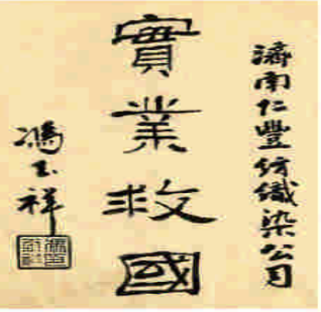 濟南仁豐紡織染公司
實業救國
馮玉祥